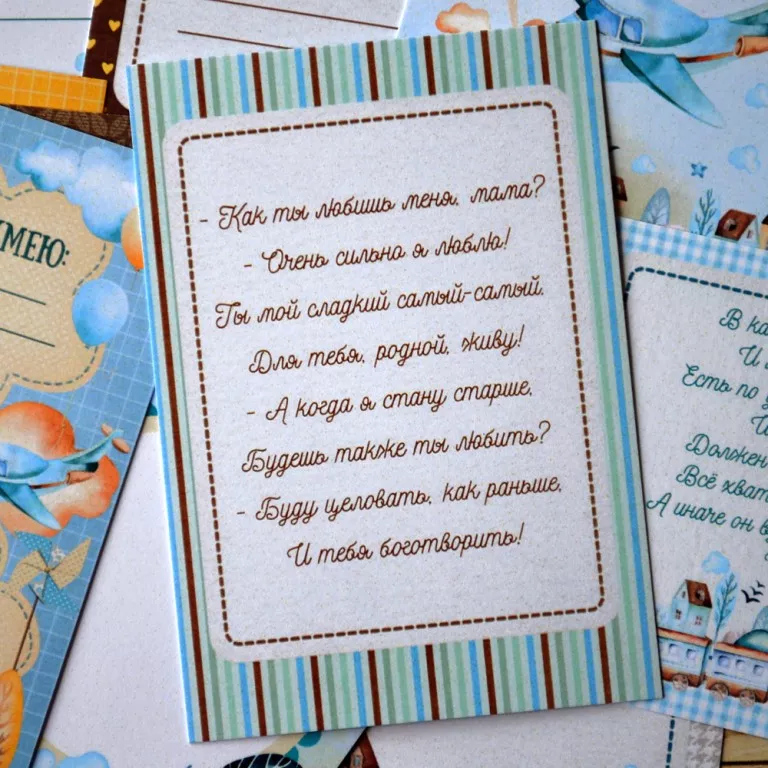 УМЕЮ:
- Как ты любишь меня, мама?
- Очень сильно я люблю!
Ты мой сладкий самый-самый,
Для тебя, родной, живу!
- А когда я стану старше,
Будешь также ты любить?
- Буду целовать, как раньше,
И тебя боготворить!
В
И
Есть по
Должен
Всё
А иначе он